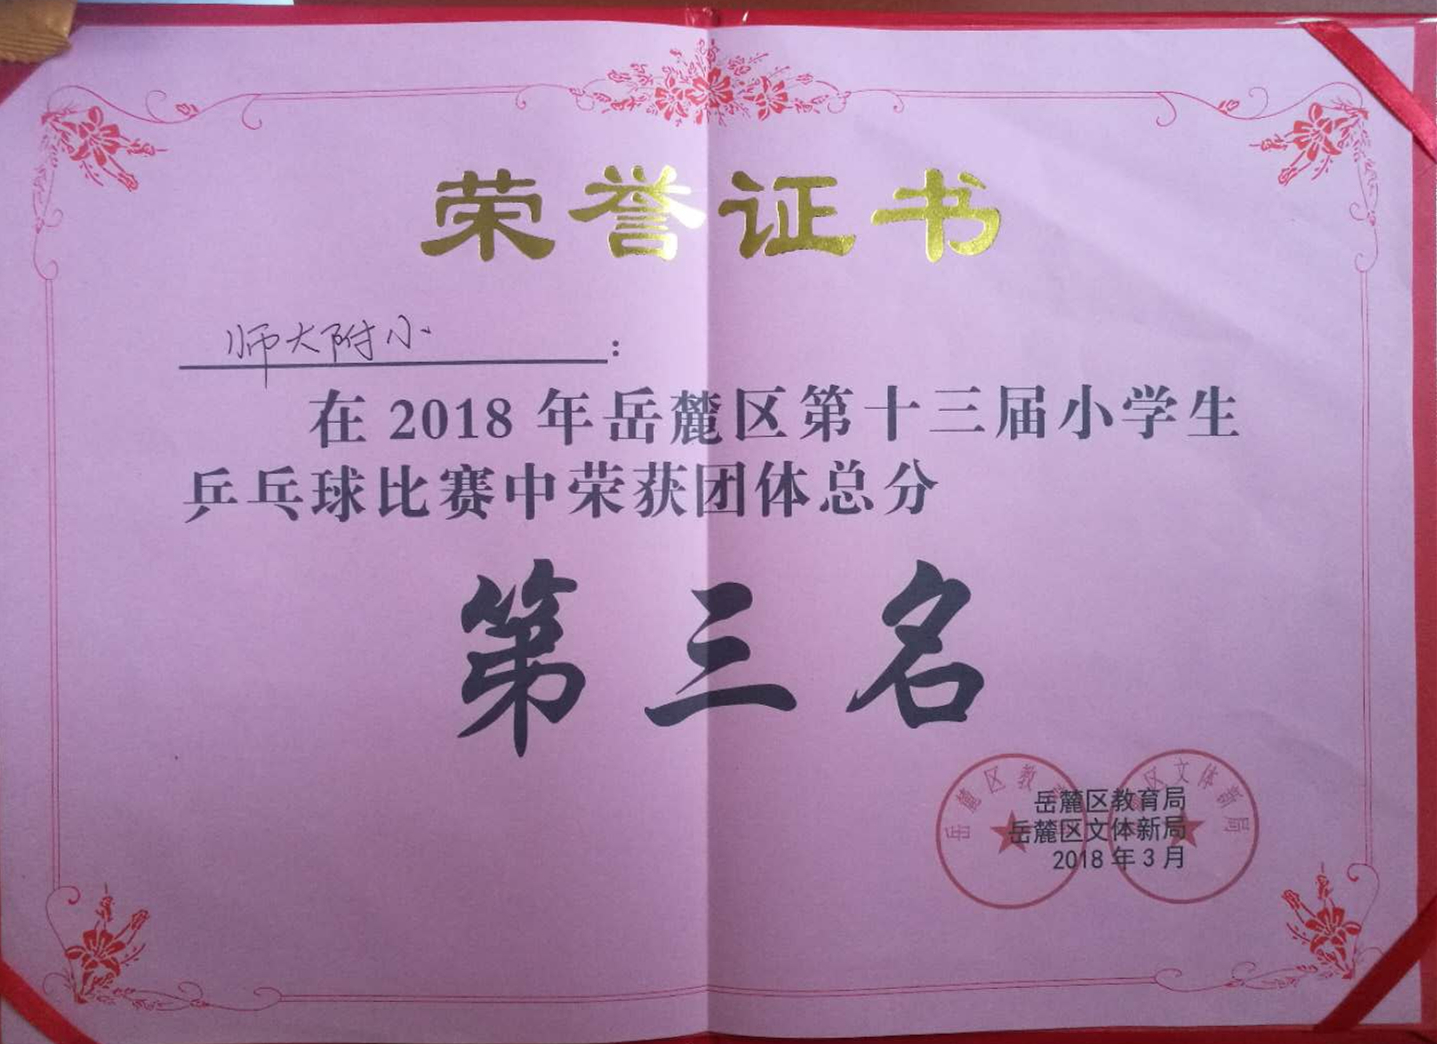 荣誉证书
师大附小：
在 2018 年岳麓区第十三届小学生
乒乓球比赛中荣获团体总分
第三名
岳麓区教育局
岳麓区文体新局
2018 年 3 月
岳麓区教
区文体新局